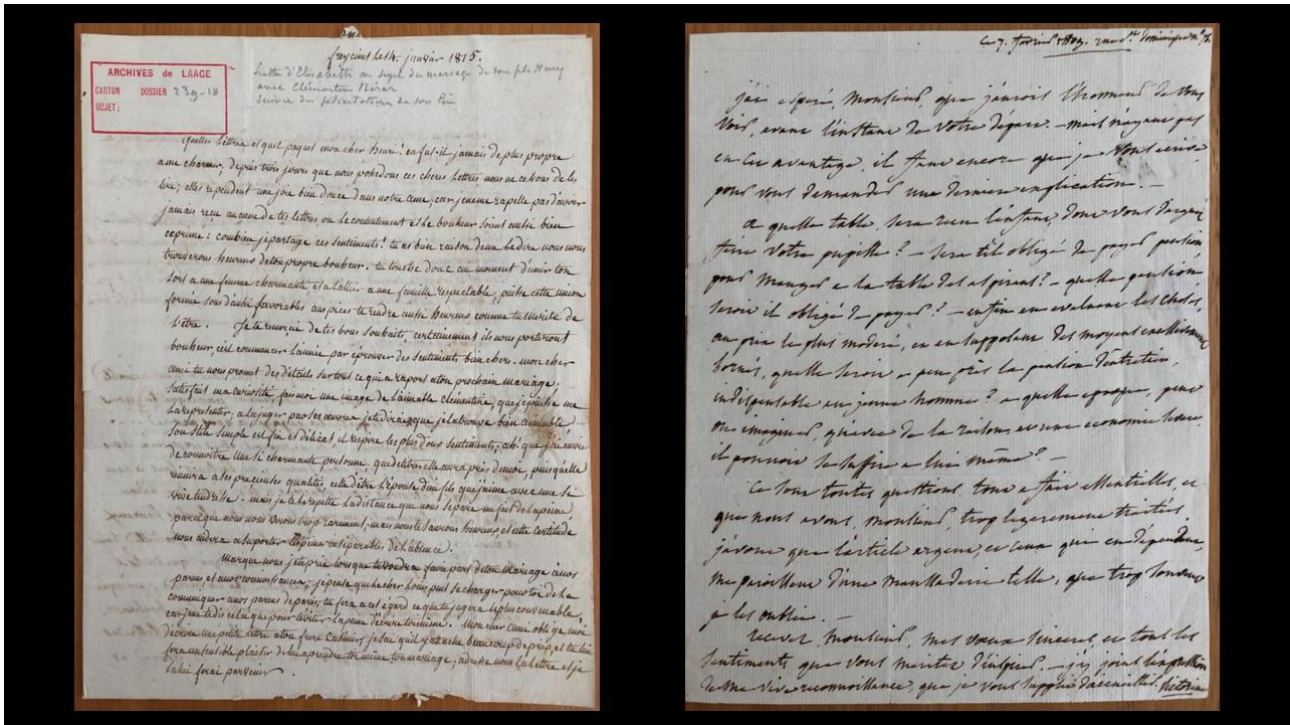 freycinet le 14. janvier 1815.
ARCHIVES de LAAGE
CARTON DOSSIER 239-18
OBJET:
Lettre d'Elisabeth au sujet du mariage de son fils Henry
avec Clémentine
Suivie de de son
quelles lettres et quel paquet mon cher henri! en fut-il jamais de plus propre
a me charmer, depuis trois jours que nous possedons ces cheres lettres nous ne cessons de les
lire; elles rependent une joie bien douce dans notre ame, car je ne me rapelle pas d'avoir
jamais reçu aucune de tes lettres ou le contentement et le bonheur soient aussi bien
exprimé: combien je partage ces sentiments! tu as bien raison de me le dire nous nous
trouverons heureux de ton propre bonheur. tu touche donc au moment d'unir ton
sort a une femme charmante et a t'allier a une famille respectable, puisse cette union
formée sous d'aussi favorables auspices te rendre aussi heureux comme tu merite de
l'etre. Je te remercie de tes bons souhaits, certainement ils nous porteront
bonheur, c'est commencer l'année par éprouver des sentiments bien chers. mon cher
ami tu nous promet des détails sur tout ce qui a raport a ton prochain mariage.
satisfait ma curiosité, fais moi une image de l'aimable clémentine, que je puisse me
la representer, a la juger par ses œuvres je te dirai que je la trouve bien aimable
son stile simple est fin et délicat et respire les plus doux sentiments, ah! que j'ai envie
de connoitre une si charmante personne, que de titres elle aura près de moi, puisqu'elle
reunira a ses precieuses qualités, celle d'etre l'épouse d'un fils que j'aime avec une si
vive tendresse. mais je te le repette la distance qui nous separe me fait de la peine
parceque nous nous verrons trop rarement, mais nous te saurons heureux, et cette certitude
nous aidera a suporter les peines inséparables de l'absence.
marque nous je te prie lorsque tu voudra faire part de ton mariage a nos
parens, et a nos connoissances; je pense que le cher louis, peut se charger pour toi de la
communiquer a nos parens de paris, tu fera a cet égard ce que tu jugera le plus convenable,
car je ne te dis cela que pour t'éviter la peine d'écrire toi même. Mon cher ami oblige moi
d'écrire une petite lettre a ton frere je sai qu'il y attache beaucoup de prix, et tu lui
fera un sensible plaisir de lui aprendre toi même ton mariage, adresse nous la lettre et je
la lui ferai parvenir.
ce 7. fevrier 1809. rue St. dominique n°
j'ai espéré, monsieur, que j'aurois l'honneur de vous
voir, avant l'instant de votre départ. — mais n'ayant pas
eu cet avantage, il faut encore que je vous écrive,
pour vous demander une derniere explication. —
a quelle table, sera reçu l'enfant, dont vous daignez
faire votre pupille? — sera t'il obligé de payer pension
pour manger a la table des aspirants? — quelle pension
seroit il obligé de payer? — enfin en evaluant les choses
au prix le plus modéré, et en supposant des moyens excessivement
bornés, quelle seroit a peu près la pension d'entretien,
indispensable au jeune homme? a quelle epoque, peut
on imaginer, qu'avec de la raison et une economie severe,
il pourroit se suffire a lui même? —
Ce sont toutes questions, tout a fait essentielles, et
que nous avons, monsieur, trop legerement traitées
j'avoue que l'article argent, et ceux qui en dépendent,
me paroissent d'une maussaderie telle, que trop souvent
je les oublie. —
recevez, monsieur, mes vœux sinceres, et tous les
sentiments que vous meritez d'inspirer. — j'y joint l'expression
de ma vive reconnoissance, que je vous supplie d'accueillir.